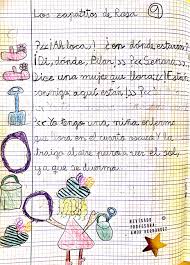 Los zapaticos de Rosa
9
¡Ah loca! ¿en dónde estarán?
¡Di, dónde, Pilar! Señora,
Dice una mujer que llora: ¡Están
conmiga aquí están!
Yo tengo una niña enferma
que llora en el cuarto oscuro Y la
traigo al aire para ver el sol,
ya que se duerma.
REVISADO
PROFESORA: